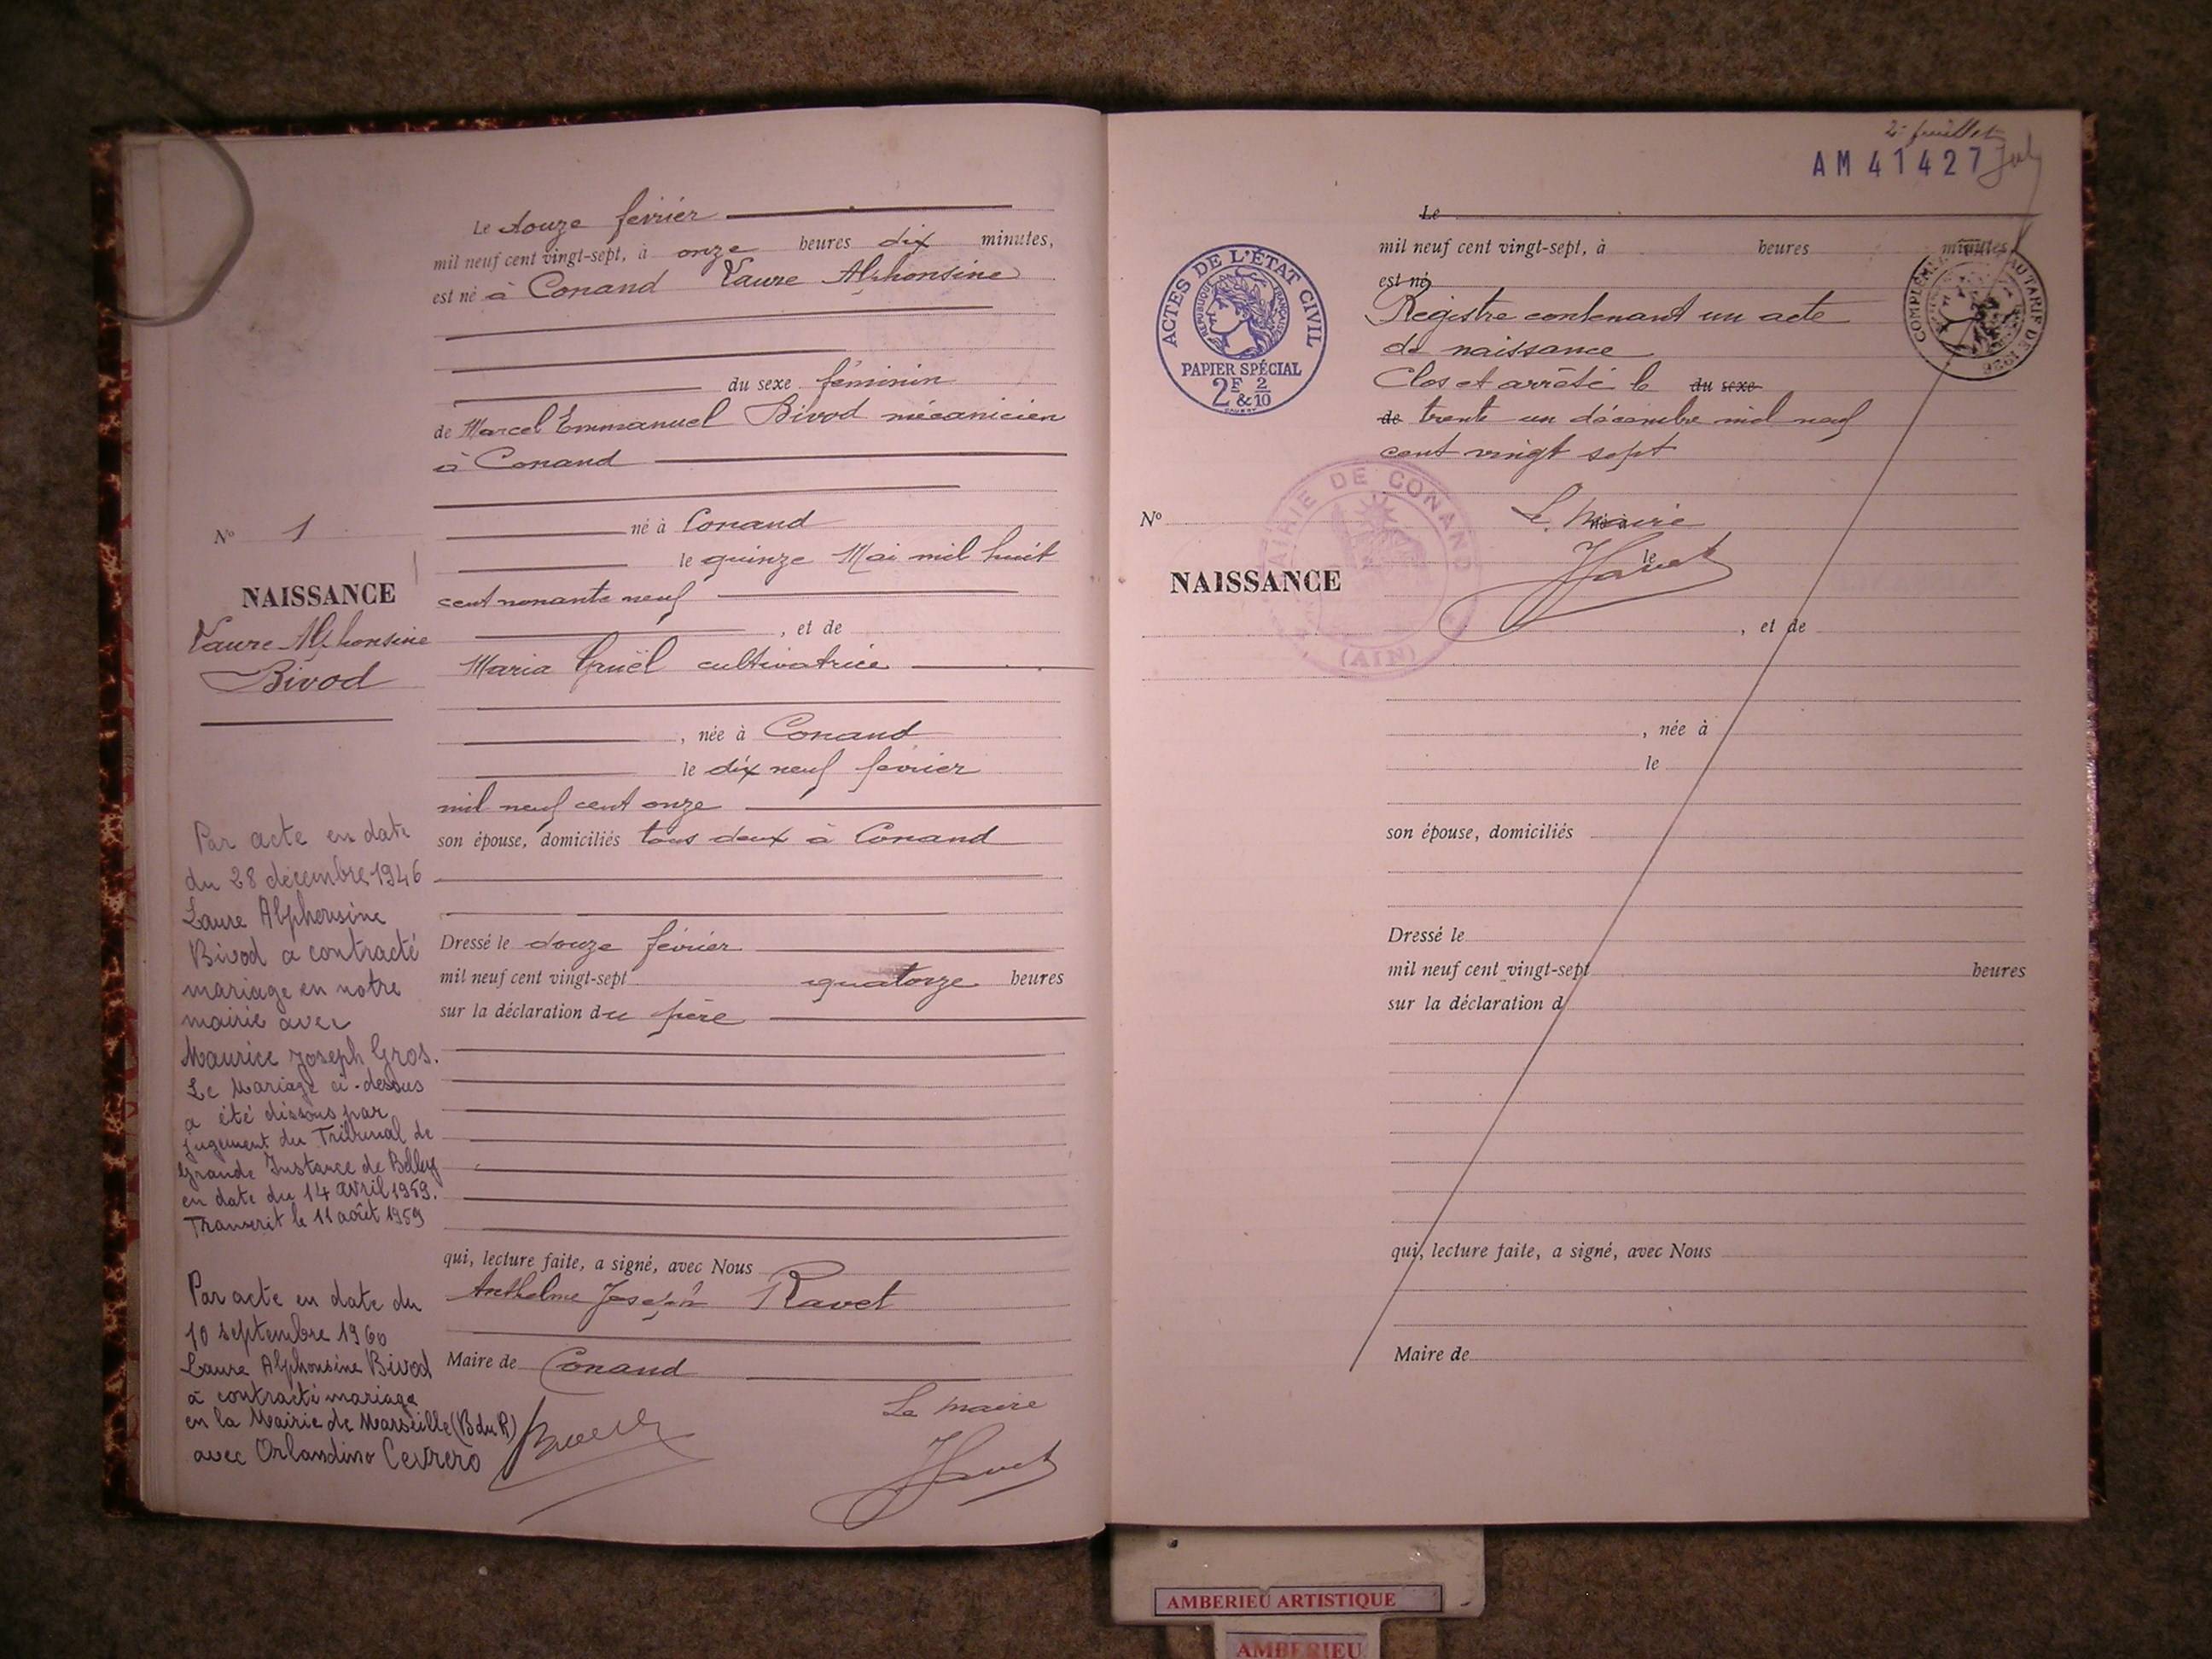 Le douze février
mil neuf cent vingt-sept, à onze heures dix minutes,
est né à Conand Laure Alphonsine
du sexe féminin
de Marcel Emmanuel Bivod mécanicien
à Conand
né à Conand
le quinze Mai mil huit
cent nonante neuf
, et de
Maria cultivatrice
, née à Conand
le dix neuf février
mil neuf cent onze
son épouse, domiciliés tous deux à Conand
Dressé le douze février
mil neuf cent vingt-sept quatorze heures
sur la déclaration du père
qui, lecture faite, a signé, avec Nous
Anthelme Joseph Ravet
Maire de Conand
Le maire
No 1
NAISSANCE
Laure Alphonsine
Bivod
Par acte en date
du 28 décembre 1946
Laure Alphonsine
Bivod a contracté
mariage en notre
mairie avec
Maurice Joseph Gros.
Le Mariage ci-dessus
a été dissous par
jugement du Tribunal de
Grande Instance de Belley
en date du 14 avril 1959.
Transcrit le 11 août 1959
Par acte en date du
10 septembre 1960
Laure Alphonsine Bivod
a contracté mariage
en la Mairie de Marseille (B du R)
avec Orlandino Cevrero
2e feuillet
AM 41427
Le
mil neuf cent vingt-sept, à heures minutes,
est né
Registre contenant un acte
de naissance
Clos et arrêté le du sexe
de trente un décembre mil neuf
cent vingt sept
Le Maire
né à
le
ACTES DE L'ÉTAT CIVIL
RÉPUBLIQUE FRANÇAISE
PAPIER SPÉCIAL
2F & 2/10
MAIRIE DE CONAND
(AIN)
No
NAISSANCE
, et de
, née à
le
son épouse, domiciliés
Dressé le
mil neuf cent vingt-sept heures
sur la déclaration d
qui, lecture faite, a signé, avec Nous
Maire de
AMBERIEU ARTISTIQUE
AMBERIEU